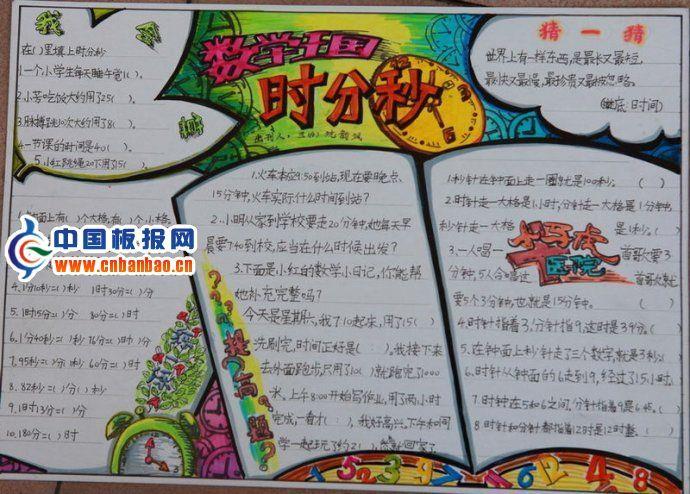 我会填
在( )里填上时分秒
1.一个小学生每天睡午觉( )。
2.小芳吃饭大约用了25( )。
3.脉搏跳10次大约用了8( )。
4.一节课的时间是40( )。
5.小红跳绳20下用了15( )。
数学王国
时分秒
出刊人:
猜一猜
世界上有一样东西,是最长又最短,
最快又最慢,最珍贵又最被忽略。
(谜底:时间)
面上有( )个大格,有( )个小格
中国板报网
www.cnbanbao.cn
4.1分10秒=( )秒 1时30分=( )分
5.1时5分=( )分 80分=( )时
6.1分40秒=( )秒 76分=( )时( )分
7.95秒=( )分( )秒 60分=( )时
8.82秒=( )分( )秒
9.1时13分=( )分
10.180分=( )时
提高题
1.火车本应9:50到站,现在要晚点
15分钟,火车实际什么时间到站?
2.小明从家到学校要走20分钟,她每天早
晨要7:40到校,应当在什么时候出发?
3.下面是小红的数学小日记,你能帮
她补充完整吗?
今天是星期六,我7:10起床,用了15( )
洗刷完,时间正好是( )。我接下来
去外面跑步,只用了10( )就跑完了1000
米。上午8:00开始写作业,用了两小时
完成,一看才( )。我好高兴。下午和同
学一起玩了约2( )
1.秒针在钟面上走一圈就是100秒。( )
2.时针走一大格是1小时,分针走一大格是1分钟,
秒针走一大格是1秒。( )
小马虎
医院
3.一人唱一首歌要3
分钟,5人合唱这首歌就
要5个3分钟,也就是15分钟。( )
4.时针指着3,分针指9,这时是3:9分。( )
5.在钟面上秒针走了三个数字,就是3秒。( )
6.时针从钟面的6走到9,经过了15小时。
7.时钟在5和6之间,分针指着9是6:45。( )
8.时针和分针都指着12时是12时整。( )